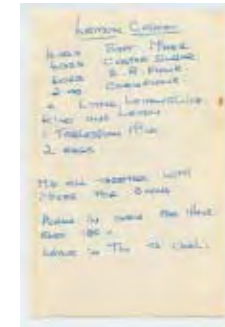 LEMON CAKE
6 ozs SOFT MARG
6 ozs CASTER SUGAR
6 ozs S.R. FLOUR
2 oz CORNFLOUR
A LITTLE LEMON JUICE
RIND ONE LEMON
1 TABLESPOON MILK
2 EGGS
MIX ALL TOGETHER WITH
PLACE IN OVEN FOR HAVE
LEAVE IN TIN TO COOL.